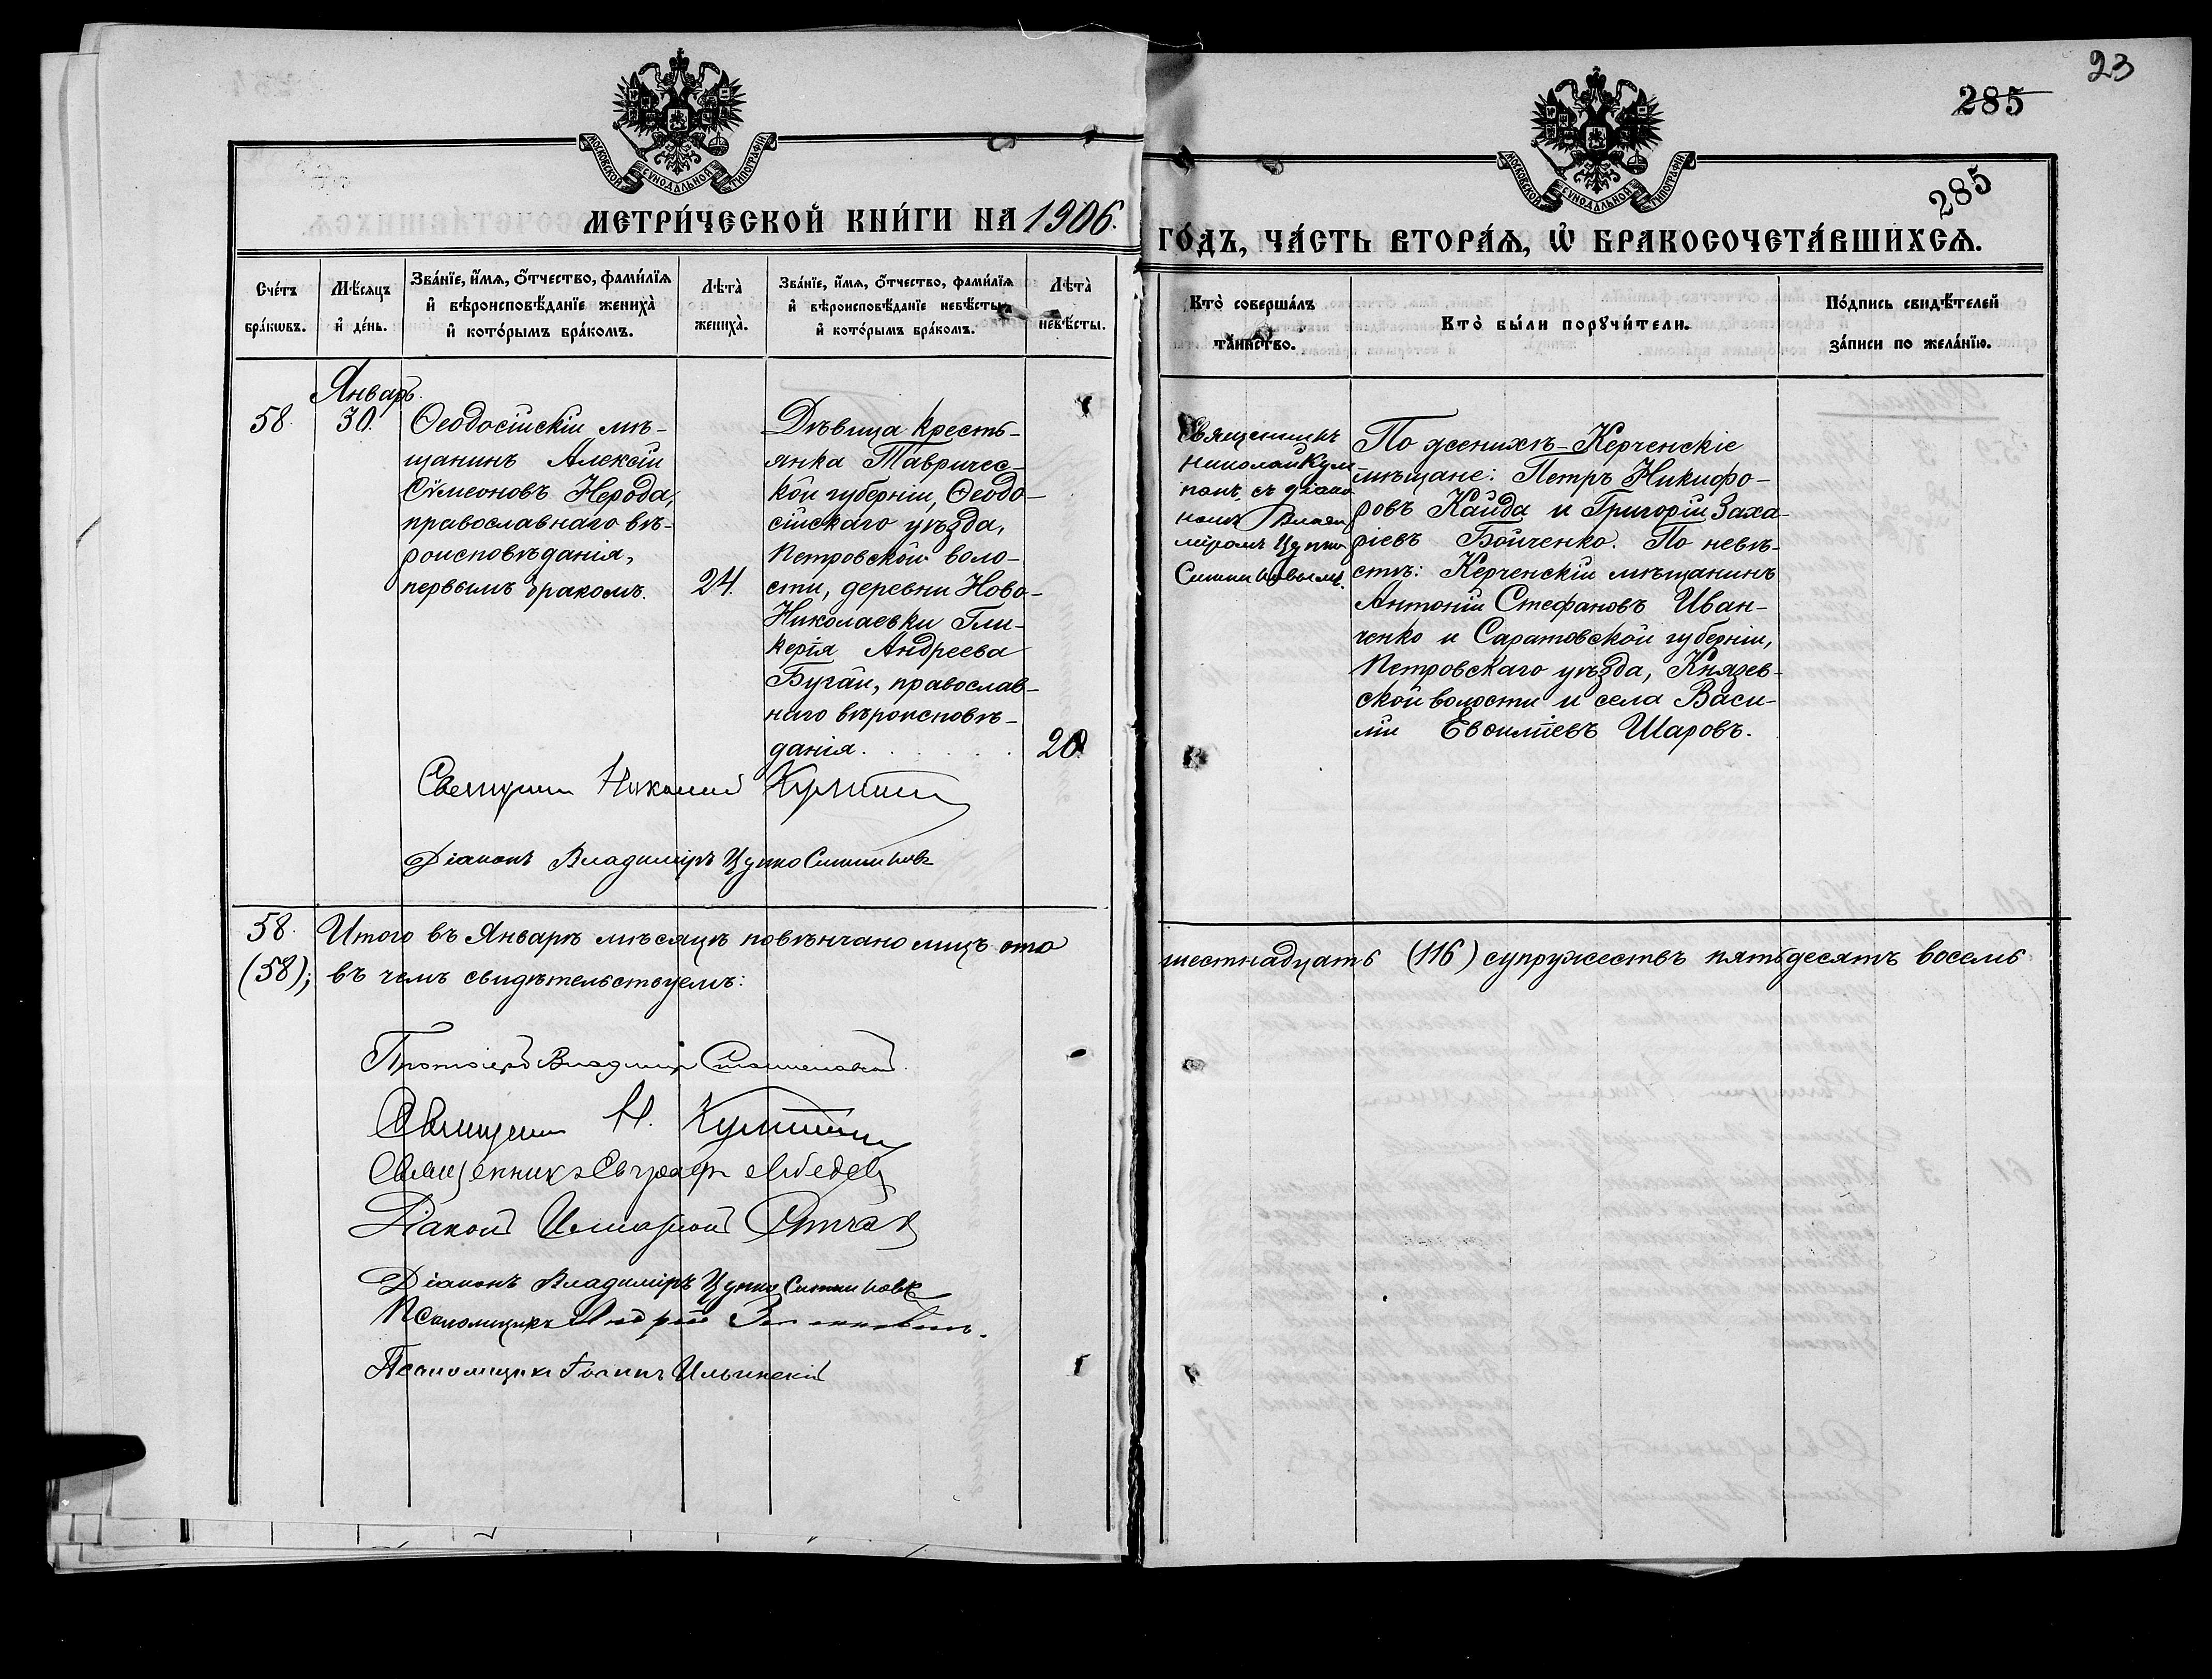 23
285
285
МОСКОВСКОЙ СѴНОДАЛЬНОЙ ТИПОГРАФІИ
МОСКОВСКОЙ СѴНОДАЛЬНОЙ ТИПОГРАФІИ
МЕТРИ́ЧЕСКОЙ КНИ́ГИ НА 1906.
ГО́ДЪ, ЧА́СТЬ ВТОРА́Ѧ, Ѽ БРАКОСОЧЕТА́ВШИХСѦ.
Сче́тъ
бра́кѡвъ.
Мѣ́сяцъ
и҆ де́нь.
Зва́нїе, и҆́мя, ѻ҆́тчество, фами́лїя
и҆ вѣроисповѣ́данїе жениха̀
и҆ кото́рымъ бра́комъ.
Лѣта̀
жениха̀.
Зва́нїе, и҆́мя, ѻ҆́тчество, фами́лїя
и҆ вѣроисповѣ́данїе невѣ́сты
и҆ кото́рымъ бра́комъ.
Лѣта̀
невѣ́сты.
Кто̀ соверша́лъ
та́инство.
Кто̀ бы́ли порꙋчи́тели.
По́дпись свидѣ́телей
за́писи по жела́нїю.
58.
Январь.
30.
Ѳеодосійскій мѣ-
щанинъ Алексій
Сѵмеоновъ Нерода,
православнаго вѣ-
роисповѣданія,
первымъ бракомъ.
24.
Дѣвица кресть-
янка Тавричес-
кой губерніи, Ѳеодо-
сійскаго уѣзда,
Петровской воло-
сти, деревни Ново-
Николаевки Гли-
керія Андреева
Бугай, православ-
наго вѣроисповѣ-
данія.
20
Священникъ
Николай
съ діако-
номъ Влади-
міромъ Цупко
По женихѣ - Керченскіе
мѣщане: Петръ Никифо-
ровъ Кайда и Григорій Заха-
ріевъ Бойченко. По невѣ-
стѣ: Керченскій мѣщанинъ
Антоній Стефановъ Иван-
ченко и Саратовской губерніи,
Петровскаго уѣзда, Князев-
ской волости и села Васи-
лій Шаровъ.
Николай
Діаконъ Владиміръ Цупко
58.
(58);
Итого въ Январѣ мѣсяцѣ повѣнчано лицъ сто
шестнадцать (116) супружествъ пятьдесятъ восемь
въ чемъ свидѣтельствуемъ:
Протоіерей Владимир
Н.
Священникъ Евграфъ Лебедев
Діакон
Діаконъ Владиміръ Цупко
Псаломщикъ Андрей
Псаломщикъ Ильинскій